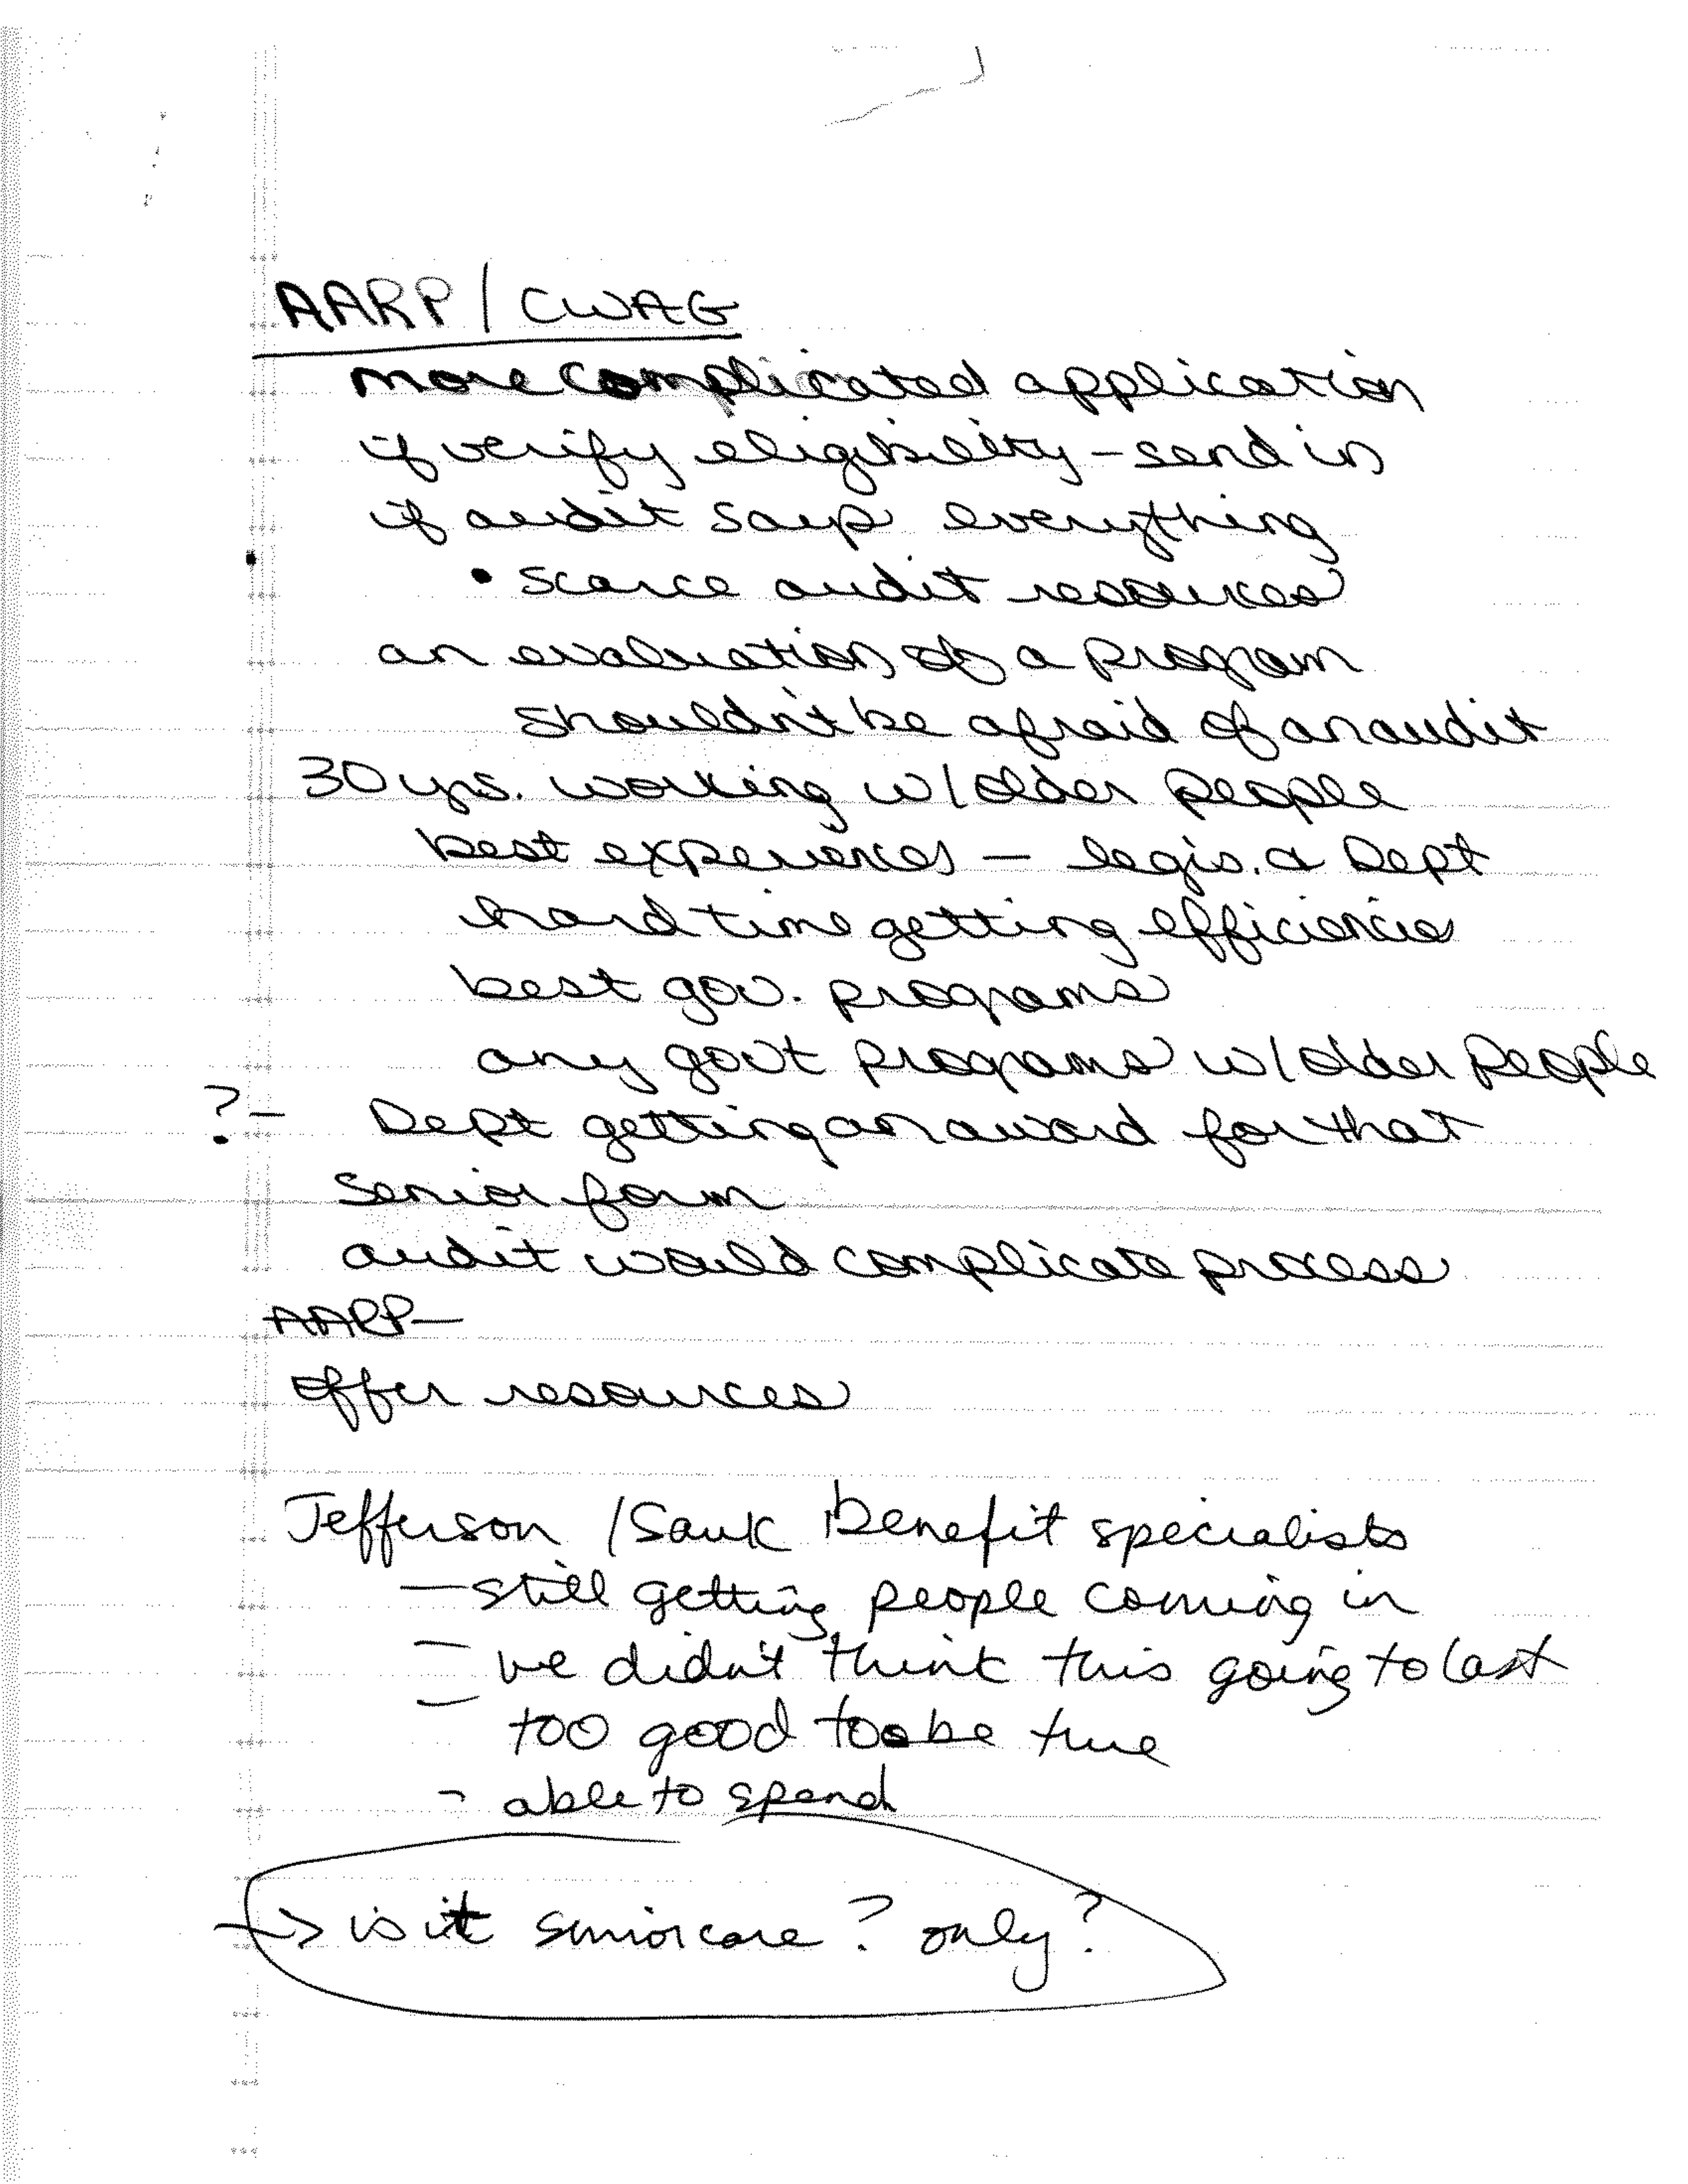 AARP / CWAG
more complicated application
if verify eligibility – send in
if audit says everything
• scarce audit resources
an evaluation of a program
shouldn't be afraid of an audit
30 yrs. working w/ older people
best experiences – legis. & Dept
hard time getting efficiencies
best gov. programs
any gov't programs w/ older people
? – Dept getting an award for that
senior form
audit would complicate process
AARP –
offer resources
Jefferson / Sauk Benefit specialists
– still getting people coming in
– we didn't think this going to last
– too good to be true
– able to spend
→ is it seniorcare? only?